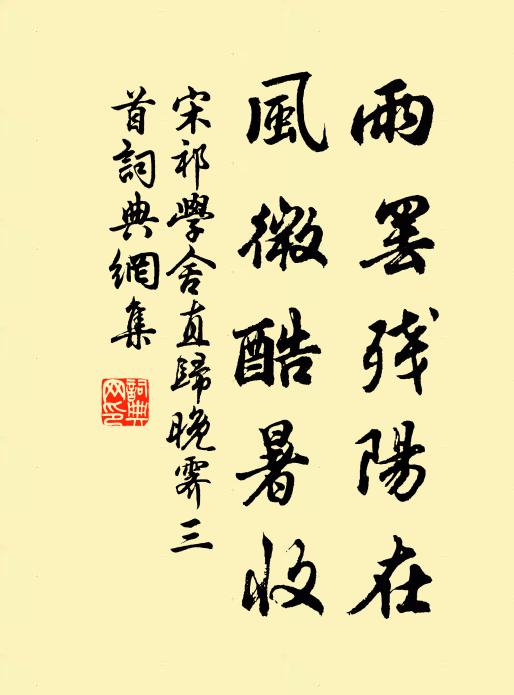 雨罢残陽在
風微酷暑收
宋祁學舍直歸晚霽三
首詞典網集
詞典
网印